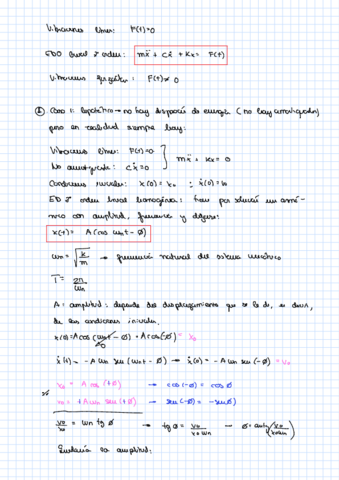 Vibraciones libres: F(t)=0
EDO lineal 2º orden: mẍ + cẋ + Kx = F(t)
Vibraciones forzadas: F(t) ≠ 0
① Caso 1: hipotético → no hay disipación de energía (no hay amortiguador)
pero en realidad siempre hay:
Vibraciones libres: F(t)=0
No amortiguado: cẋ=0 } mẍ + Kx = 0
Condiciones iniciales: x(0) = x₀ ; ẋ(0) = v₀
ED 2º orden lineal homogénea: tiene por solución un armó-
nico con amplitud, frecuencia y desfase:
x(t) = A cos(ωn t - ø)
ωn = √(K/m) → frecuencia natural del sistema mecánico
T = 2π/ωn
A = amplitud: depende del desplazamiento que se le dé, es decir,
de las condiciones iniciales.
x(0) = A cos(ωn t - ø) = A cos(-ø) = x₀
ẋ(t) = -A ωn sen(ωn t - ø) → ẋ(0) = -A ωn sen(-ø) = v₀
x₀ = A cos(+ø) → cos(-ø) = cosø
v₀ = +A ωn sen(+ø) → sen(-ø) = -senø
v₀/x₀ = ωn tg ø → tg ø = v₀/(x₀ ωn) → ø = arctg(v₀/(x₀ωn))
la amplitud: